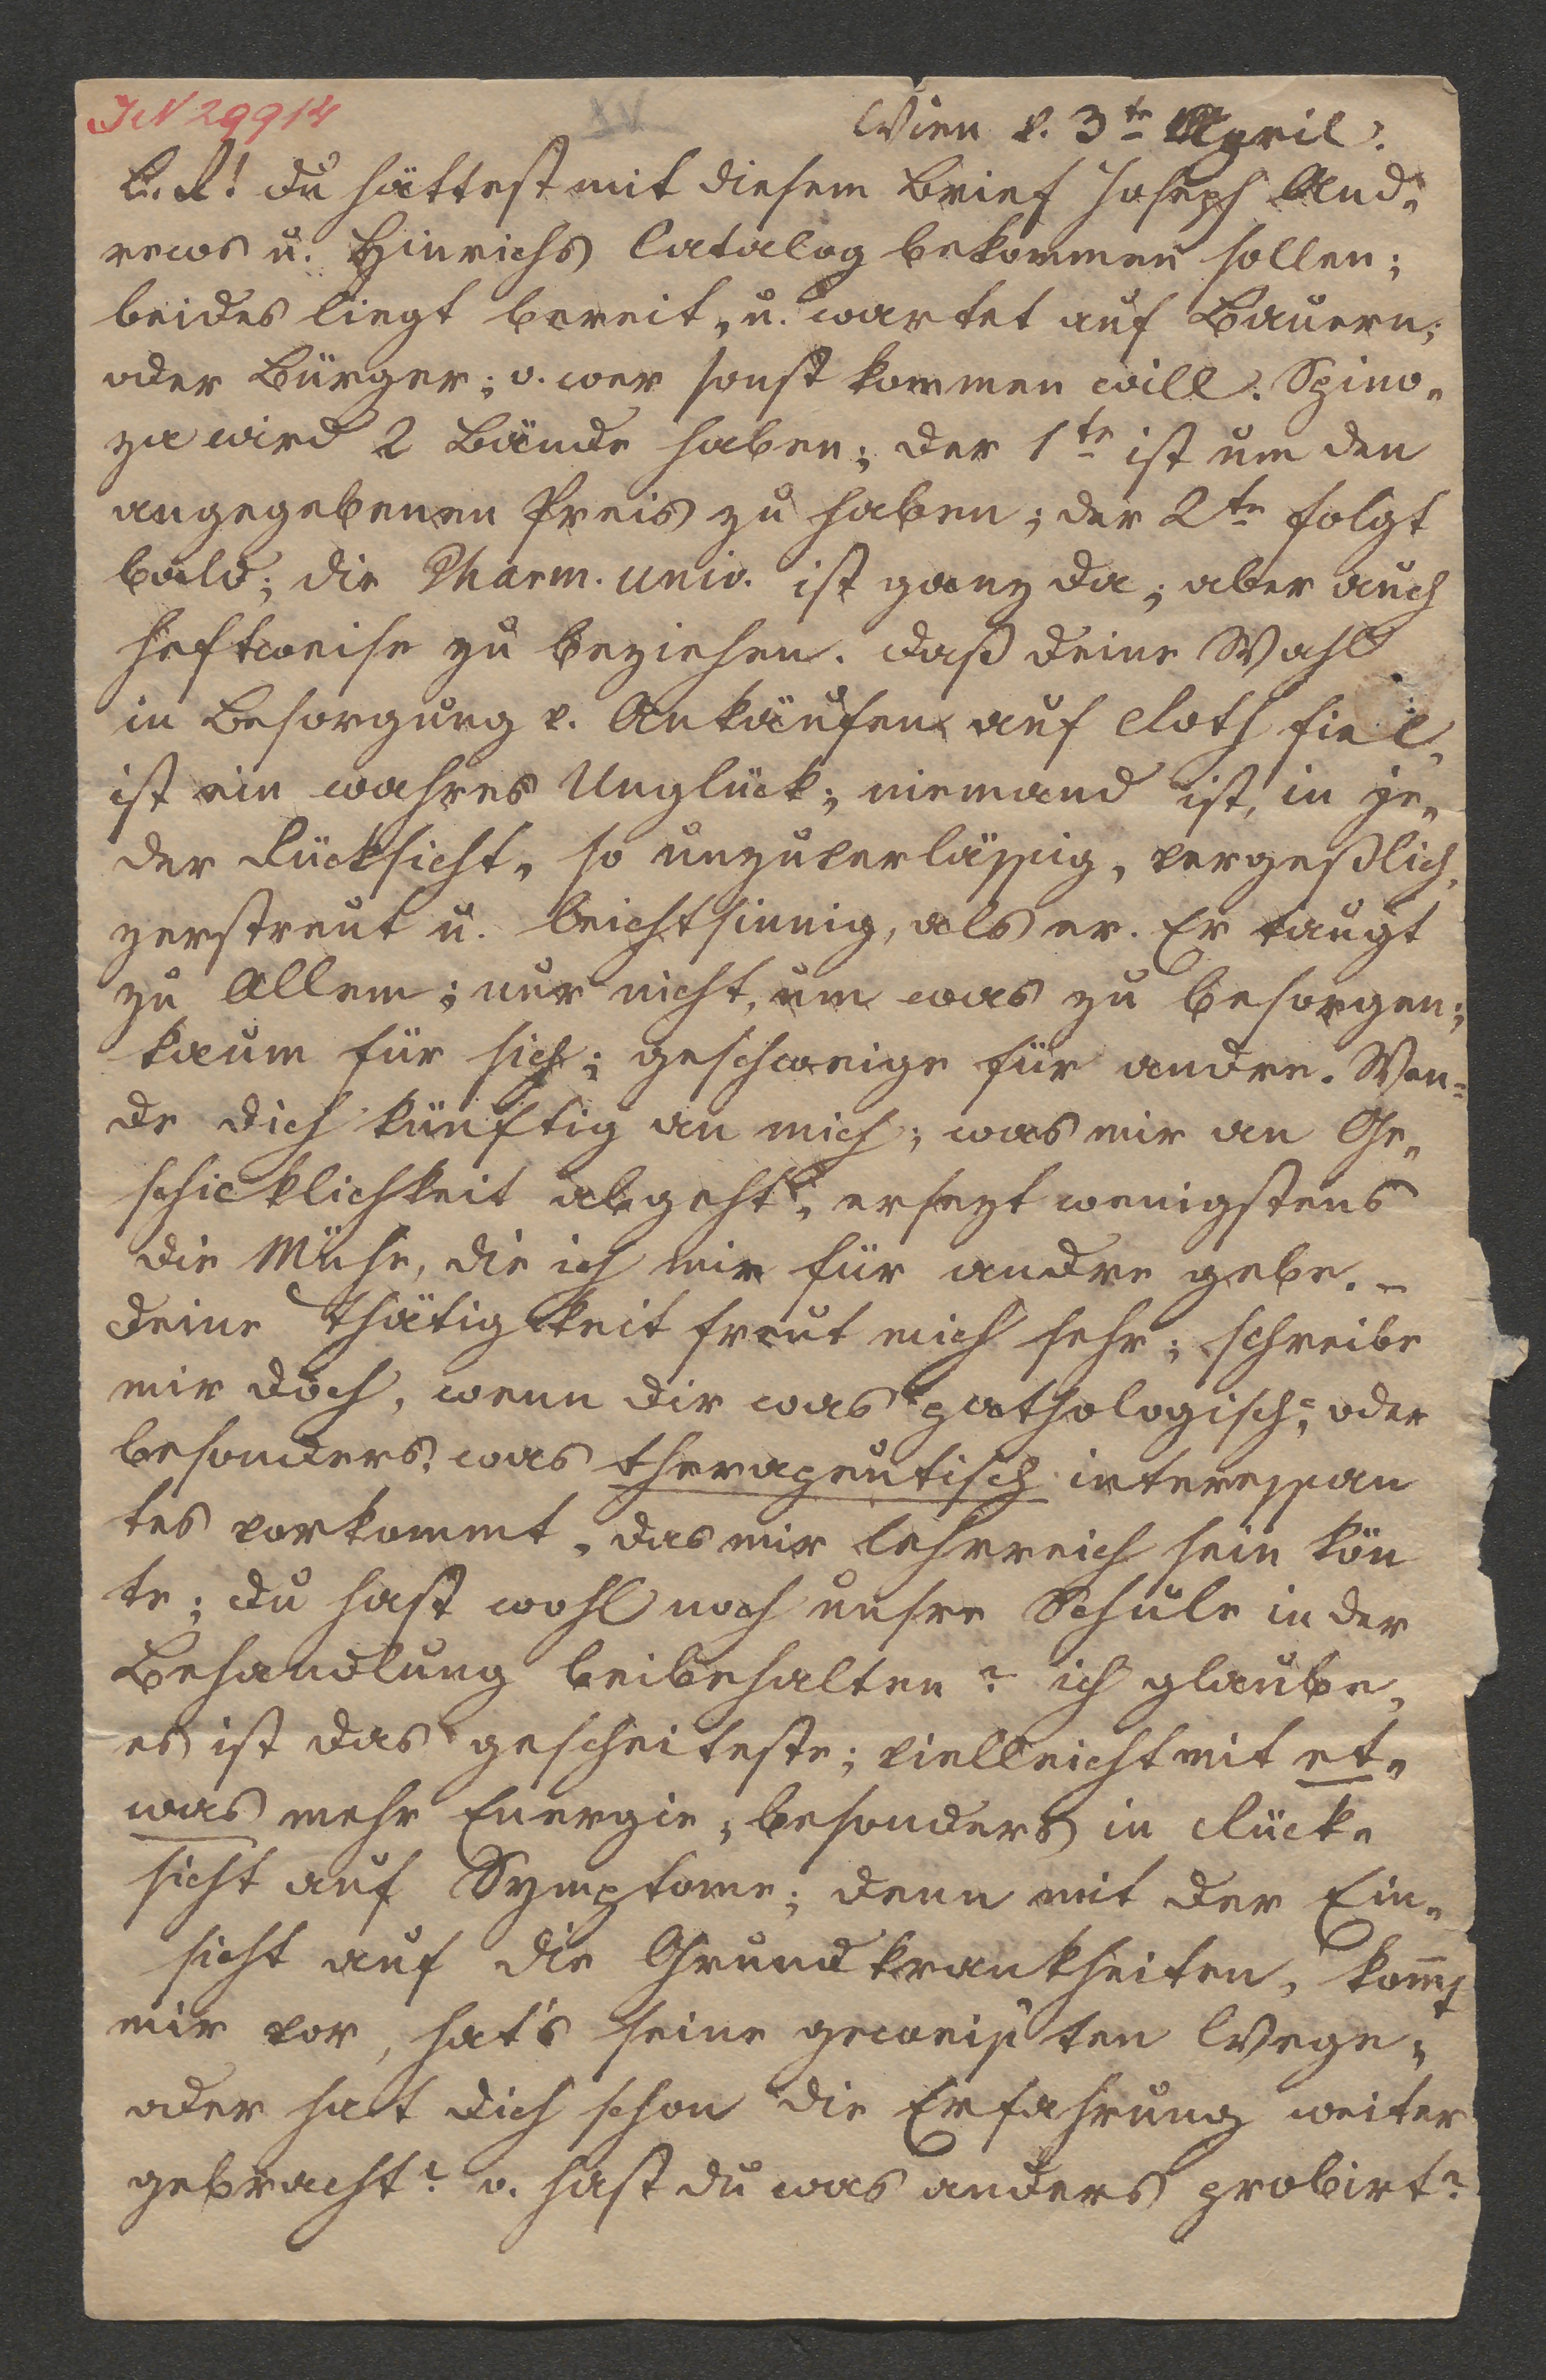 JN 29914
XV
Wien d. 3te April.
L. R! Du hättest mit diesem Brief Joseph And„
rews u. Hinrichs Catalog bekommen sollen;
beides liegt bereit, u. wartet auf Bauern;
oder Bürger; o. wer sonst kommen will. Spino„
za wird 2 Bände haben; der 1te ist um den
angegebenen Preis zu haben; der 2te folgt
bald; die Pharm. univ. ist ganz da; aber auch
heftweise zu beziehen. Daß deine Wahl
in Besorgung v. Ankäufen auf Roth fiel,
ist ein wahres Unglück; niemand ist, in je„
der Rücksicht, so unzuverlässig, vergeßlich,
zerstreut u. leichtsinnig, als er. Er taugt
zu Allem; nur nicht, um was zu besorgen;
kaum für sich; geschweige für andre. Wen=
de dich künftig an mich; was mir an Ge„
schicklichkeit abgeht, ersezt wenigstens
die Mühe, die ich mir für andre gebe. –
Deine Thätigkeit freut mich sehr; schreibe
mir doch, wenn dir was pathologisch=, oder
besonders, was therapeutisch interessan
tes vorkommt, das mir lehrreich sein kön
te; du hast wohl noch unsre Schule in der
Behandlung beibehalten? ich glaube,
es ist das gescheiteste; vielleicht mit et„
was mehr Energie, besonders in Rück„
sicht auf Symptome; denn mit der Ein„
sicht auf die Grundkrankheiten, kom̅t
mir vor, hat's seine geweis'ten Wege;
oder hat dich schon die Erfahrung weiter
gebracht? o. hast du was anders probirt?